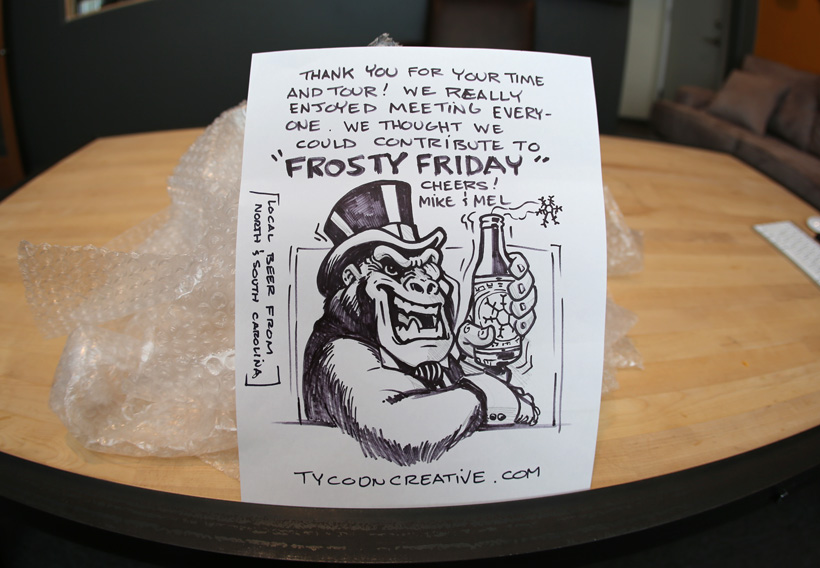 THANK YOU FOR YOUR TIME
AND TOUR! WE REALLY
ENJOYED MEETING EVERY-
ONE. WE THOUGHT WE
COULD CONTRIBUTE TO
"FROSTY FRIDAY"
CHEERS!
MIKE & MEL
[LOCAL BEER FROM
NORTH & SOUTH CAROLINA]
TYCOONCREATIVE.COM